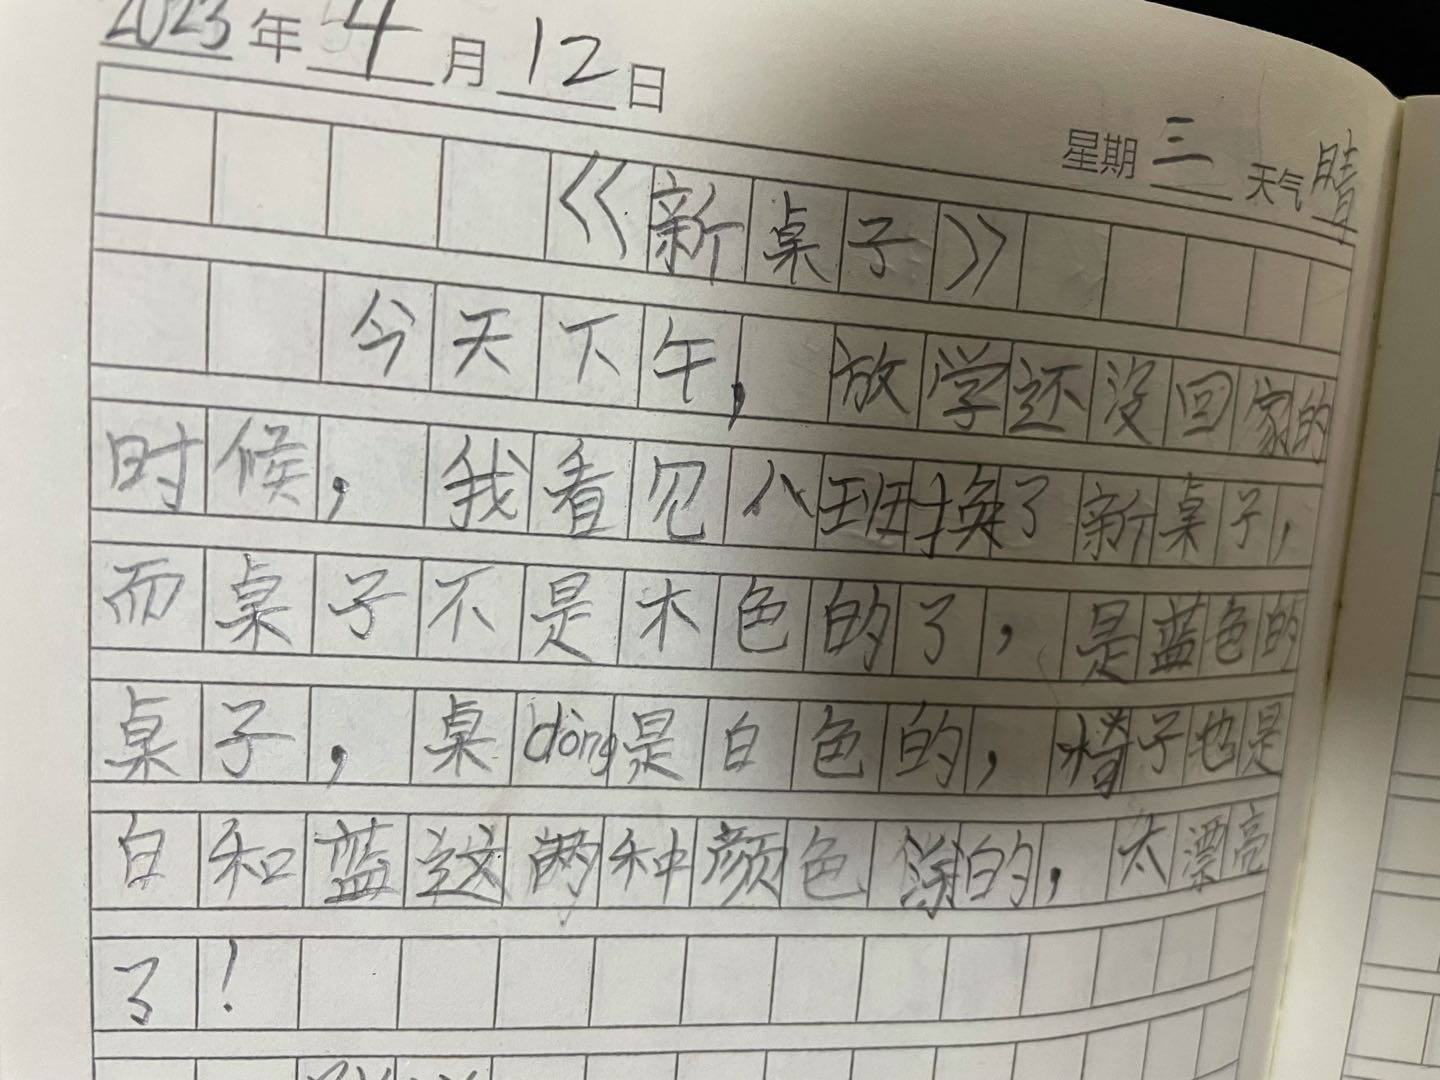 2023年4月12日
星期三 天气晴
《新桌子》
今天下午，放学还没回家的
时候，我看见八班换了新桌子，
而桌子不是木色的了，是蓝色的
桌子，桌dòng是白色的，椅子也是
白和蓝这两种颜色涂的，太漂亮
了！